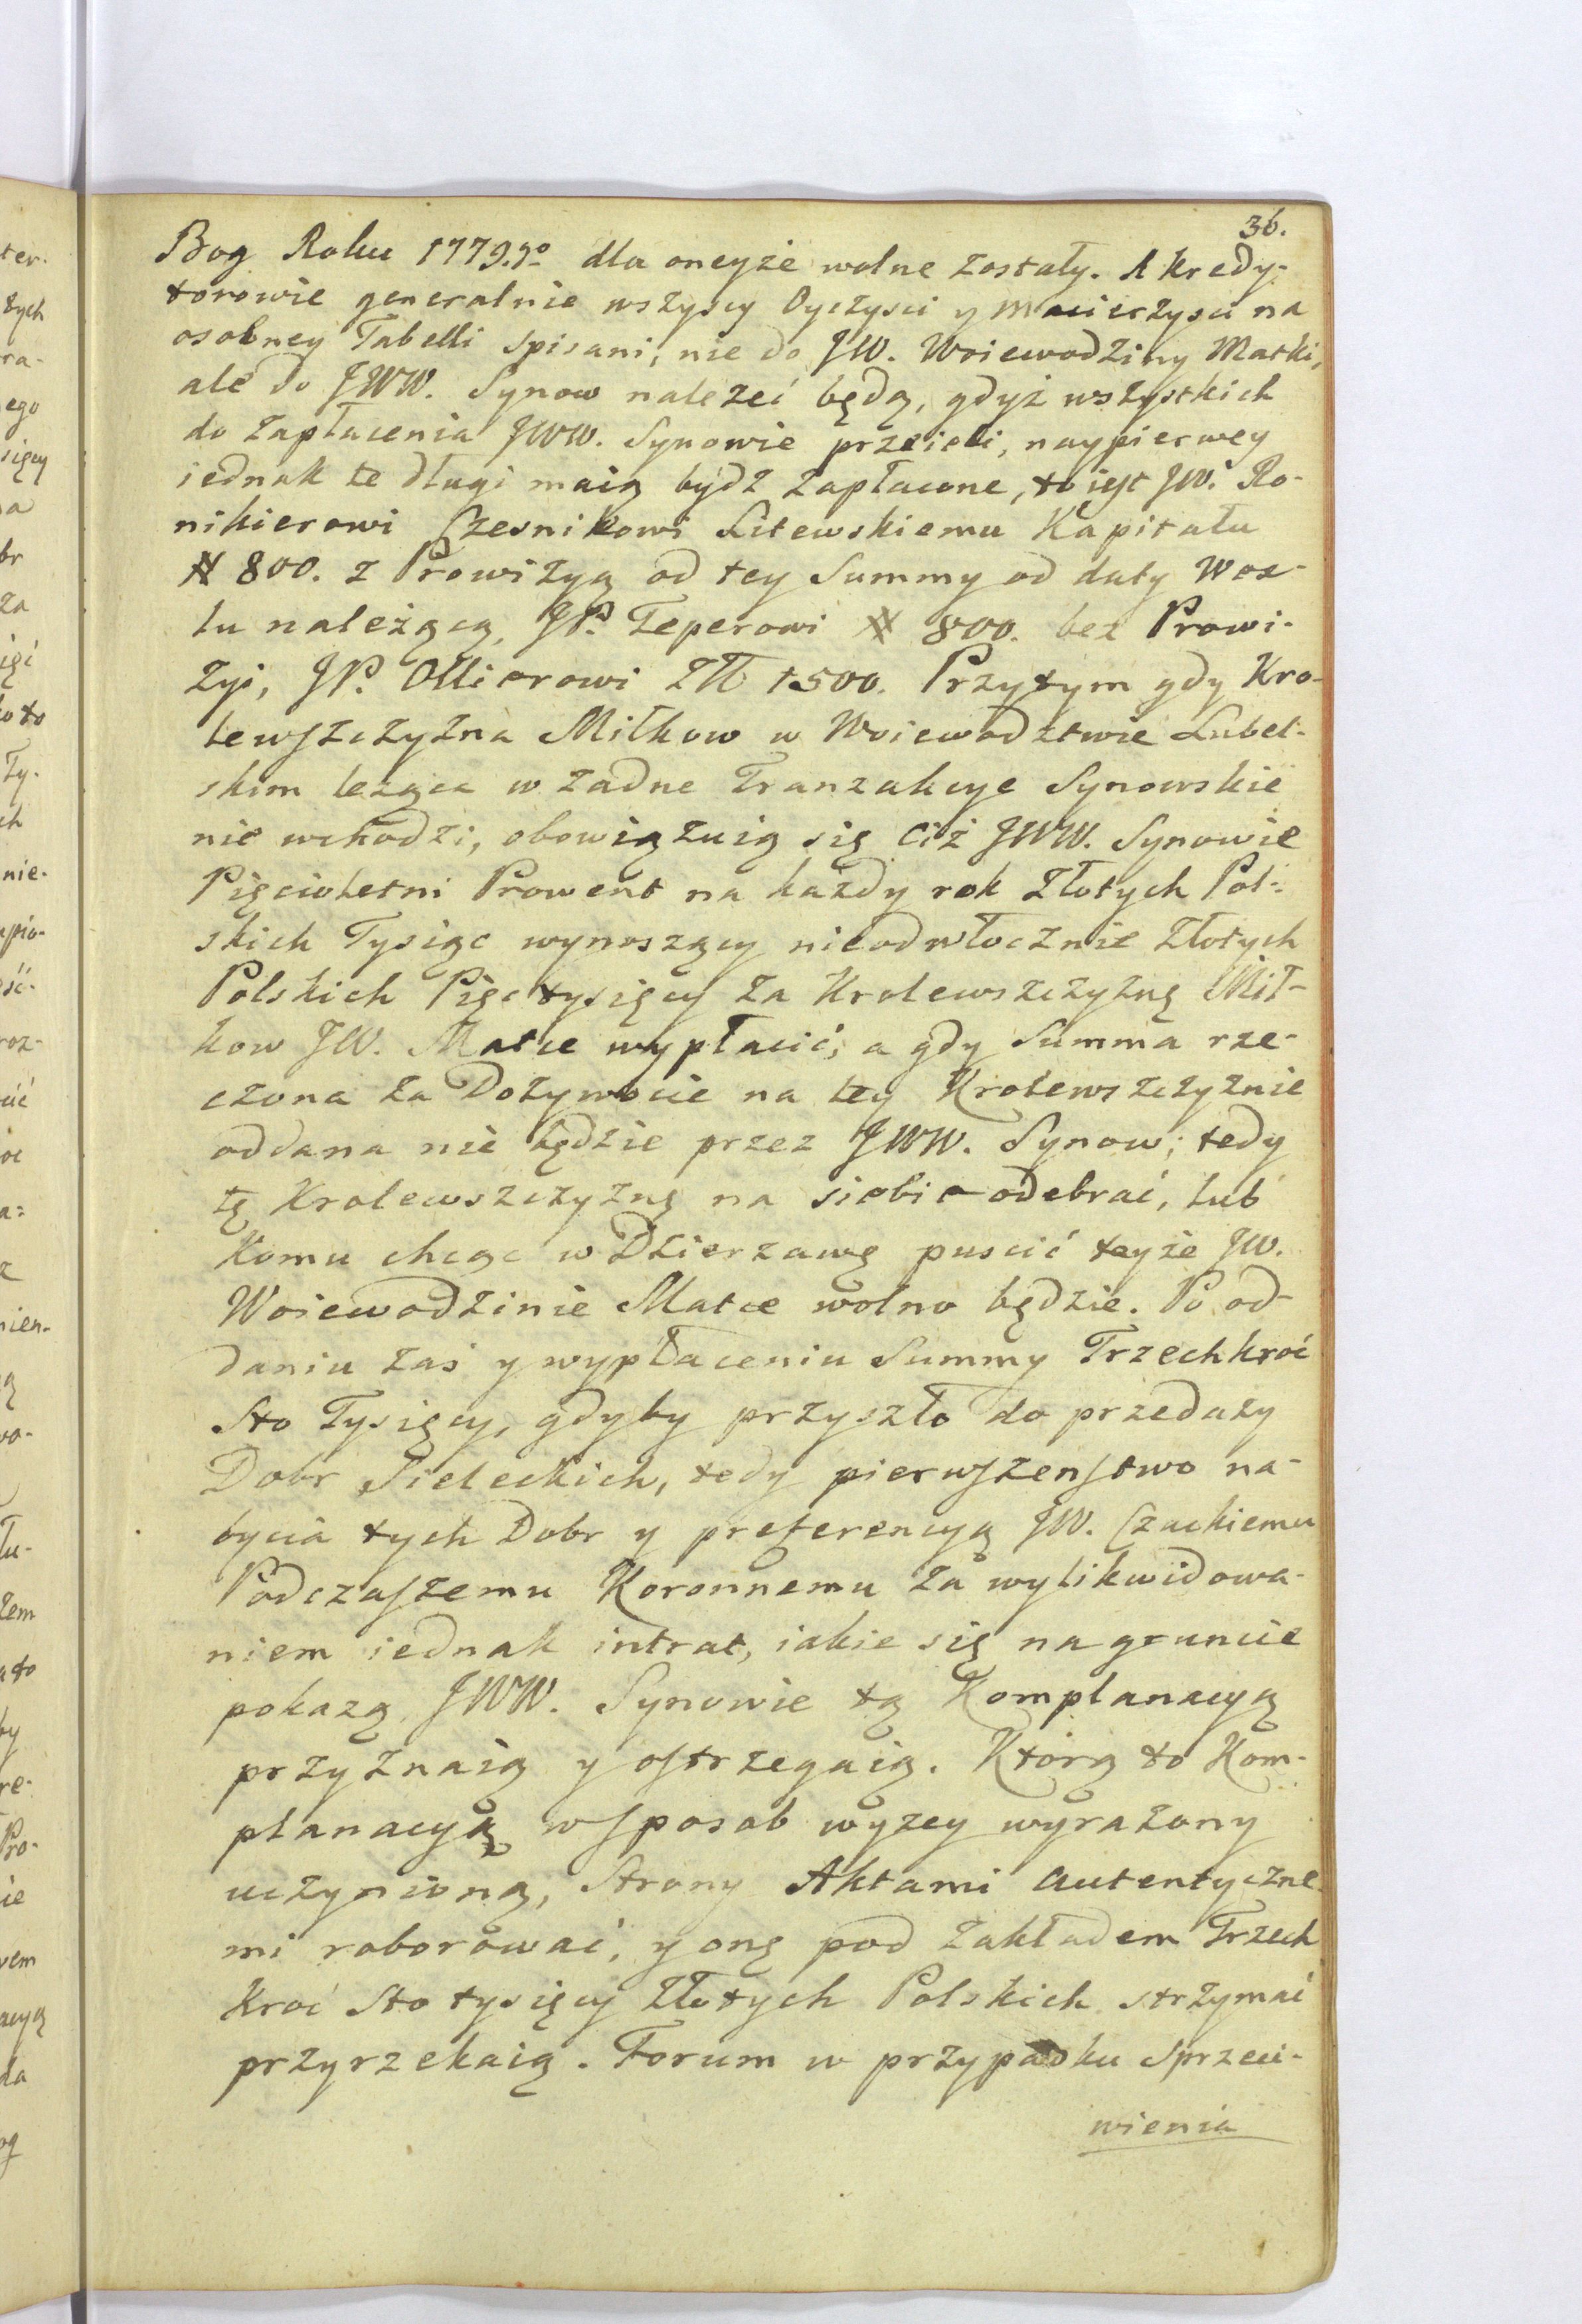 36.
Bog Roku 1779.go dla oneyże wolne zostały. A kredy-
torowie generalnie wszyscy Oyczysci y Macierzysci na
osobney Tabelli spisani, nie do JW. Woiewodziny Matki,
ale do JWW. Synow należeć będą, gdyż wszystkich
do zapłacenia JWW. Synowie przeieli, naypierwey
iednak te długi maią bydź zapłacone, to iest JW. Ro-
nikierowi Czesnikowi Litewskiemu Kapitału
# 800. z Prowizyą od tey Summy od daty Wex-
lu należącą, JP. Teperowi # 800. bez Prowi-
zyi, JP. Ollierowi Zł 1500. Przytym gdy Kro-
lewszczyzna Miłkow w Woiewodztwie Lubel-
skim leżąca w żadne Tranzakcye Synowskie
nie wchodzi, obowiązuią się Ciż JWW. Synowie
Pięcioletni Prowent na każdy rok Złotych Pol-
skich Tysiąc wynoszący nieodwłocznie Złotych
Polskich Pięć tysięcy za Krolewszczyznę Mił-
kow JW. Matce wypłacić, a gdy Summa rze-
czona za Dożywocie na tey Krolewszczyznie
oddana nie będzie przez JWW. Synow; tedy
tę Krolewszczyznę na siebie odebrać, lub
komu chcąc w Dzierzawę puscić teyże JW.
Woiewodzinie Matce wolno będzie. Po od-
daniu zaś y wypłaceniu Summy Trzechkroć
Sto Tysięcy, gdyby przyszło do przedaży
Dobr Sieleckich, tedy pierwszenstwo na-
bycia tych Dobr y preferencyą JW. Czackiemu
Podczaszemu Koronnemu za wylikwidowa-
niem iednak intrat, iakie się na gruncie
pokażą, JWW. Synowie tą Komplanacyą
przyznaią y ostrzegaią. Którą to Kom-
planacyą w sposob wyżey wyrażony
uczynioną, Strony Aktami autentyczne-
mi roborować, y onę pod zakładem Trzech
kroć Sto tysięcy Złotych Polskich strzymać
przyrzekaią. Forum w przypadku sprzeci-
wienia